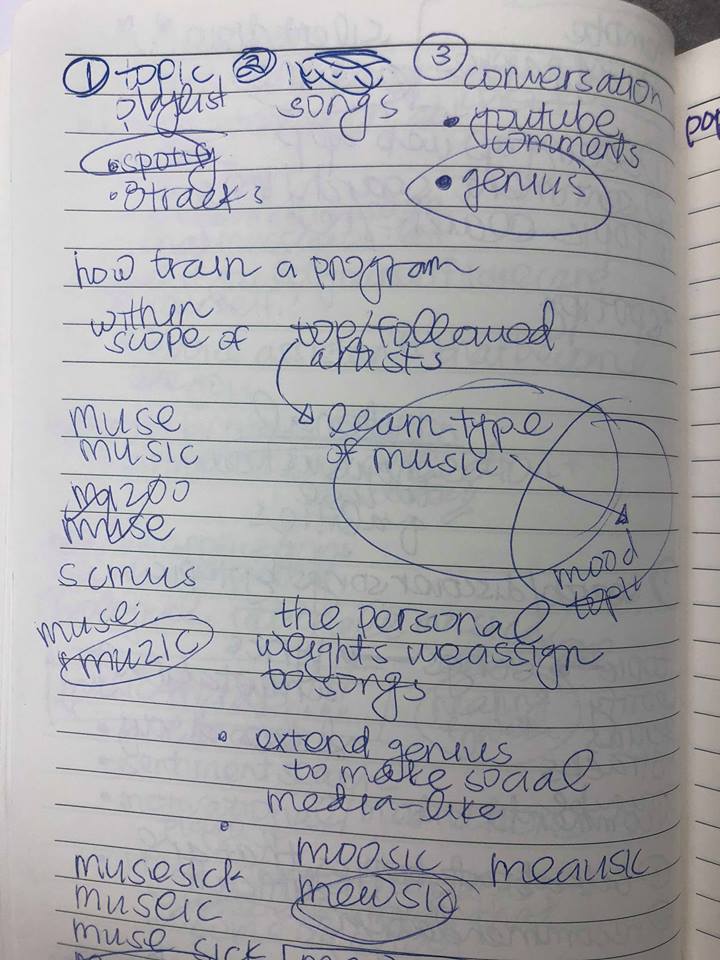 ① topic ② songs ③ conversation
playlist
• spotify
• 8tracks
• youtube
comments
• genius
how train a program
within
scope of top/followed
artists
learn type
of music
mood
muse
music
muse
scmus
muse
muzic
the personal
weights we assign
to songs
• extend genius
to make social
media-like
•
moosic meausic
mewsic
musesick
museic
muse sick